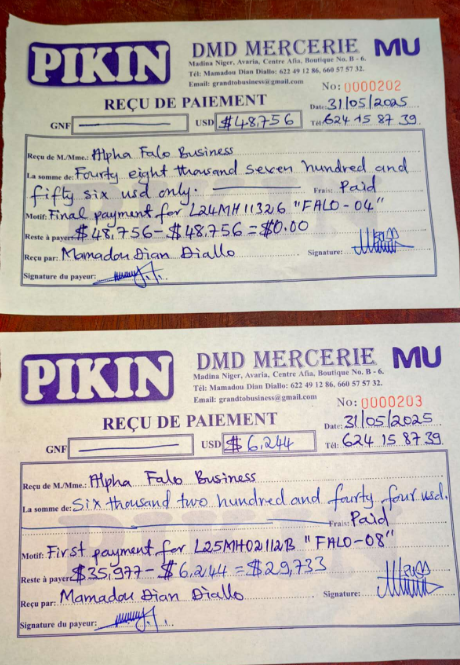 PIKIN
DMD MERCERIE MU
Madina Niger, Avaria, Centre Afia, Boutique No. B - 6.
Tél: Mamadou Dian Diallo: 622 49 12 86, 660 57 57 32.
Email: grandtobusiness@gmail.com
No: 0000202
REÇU DE PAIEMENT
Date: 31/05/2025
GNF USD $48,756 Tél: 624 15 87 39
Reçu de M./Mme.: Alpha Falo Business
La somme de: Fourty eight thousand seven hundred and
fifty six usd only. Frais: Paid
Motif: Final payment for L24MH11326 "FALO-04"
Reste à payer: $48,756-$48,756=$0.00
Reçu par: Mamadou Dian Diallo Signature:
Signature du payeur:
PIKIN
DMD MERCERIE MU
Madina Niger, Avaria, Centre Afia, Boutique No. B - 6.
Tél: Mamadou Dian Diallo: 622 49 12 86, 660 57 57 32.
Email: grandtobusiness@gmail.com
No: 0000203
REÇU DE PAIEMENT
Date: 31/05/2025
GNF USD $6,244 Tél: 624 15 87 39
Reçu de M./Mme.: Alpha Falo Business
La somme de: Six thousand two hundred and fourty four usd.
Frais: Paid
Motif: First payment for L25MH02112B "FALO-08"
Reste à payer: $35,977-$6,244=$29,733
Reçu par: Mamadou Dian Diallo Signature:
Signature du payeur: